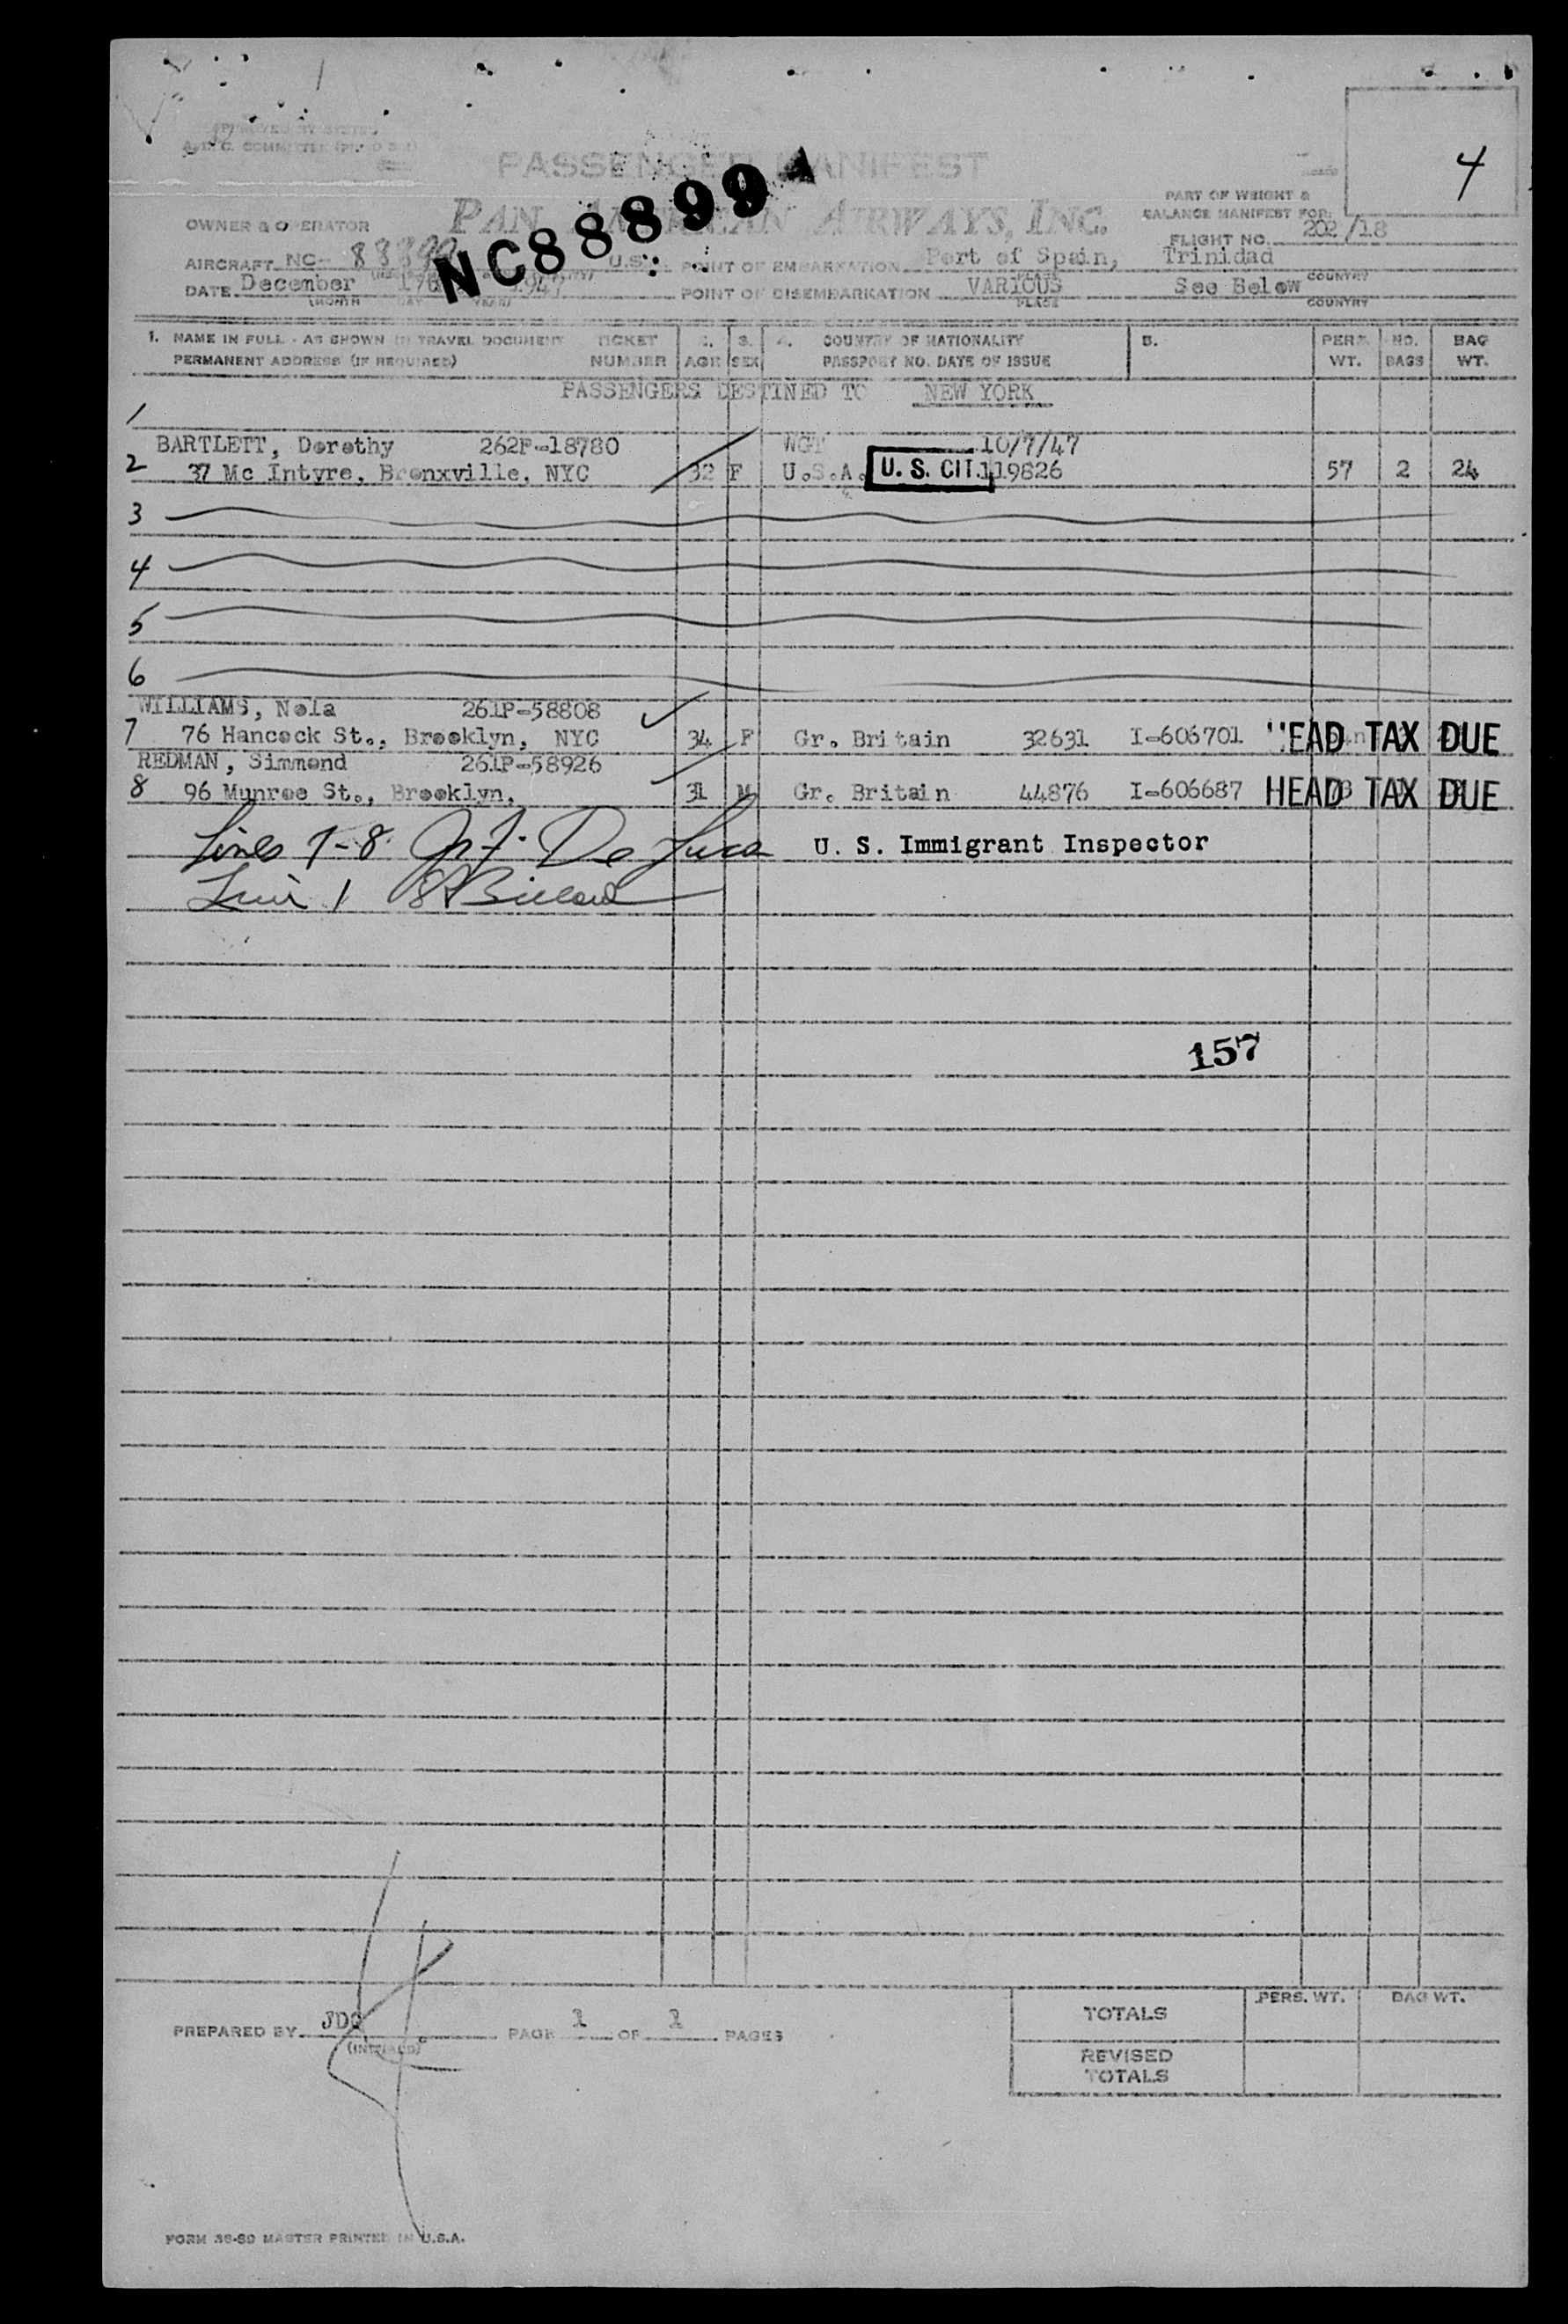 4
APPROVED BY
A.T.C. COMMITTEE
PASSENGER MANIFEST
PAN AMERICAN AIRWAYS, INC.
NC88899
PART OF WEIGHT &
BALANCE MANIFEST FOR:
OWNER & OPERATOR
FLIGHT NO. 202/18
AIRCRAFT NC- 88899 U.S. POINT OF EMBARKATION Port of Spain, Trinidad
PLACE COUNTRY
DATE December 1947 POINT OF DISEMBARKATION VARIOUS See Below
(MONTH DAY YEAR) PLACE COUNTRY
1. NAME IN FULL - AS SHOWN IN TRAVEL DOCUMENT TICKET 2. 3. 4. COUNTRY OF NATIONALITY 5. PERS. NO. BAG
PERMANENT ADDRESS (IF REQUIRED) NUMBER AGE SEX PASSPORT NO. DATE OF ISSUE WT. BAGS WT.
PASSENGERS DESTINED TO NEW YORK
1
BARTLETT, Dorothy 262P-18780 WGT 10/7/47
2 37 Mc Intyre, Bronxville, NYC 32 F U.S.A. U. S. CIT. 119826 57 2 24
3
4
5
6
WILLIAMS, Nola 261P-58808
7 76 Hancock St., Brooklyn, NYC 34 F Gr. Britain 32631 I-606701 HEAD TAX DUE
REDMAN, Simmond 261P-58926
8 96 Munroe St., Brooklyn, 31 M Gr. Britain 44876 I-606687 HEAD TAX DUE
Lines 7-8 De Luca U. S. Immigrant Inspector
Line 1
157
PREPARED BY JDG PAGE 1 OF 1 PAGES
(INITIALS)
PERS. WT. BAG WT.
TOTALS
REVISED
TOTALS
FORM 36-89 MASTER PRINTED IN U.S.A.